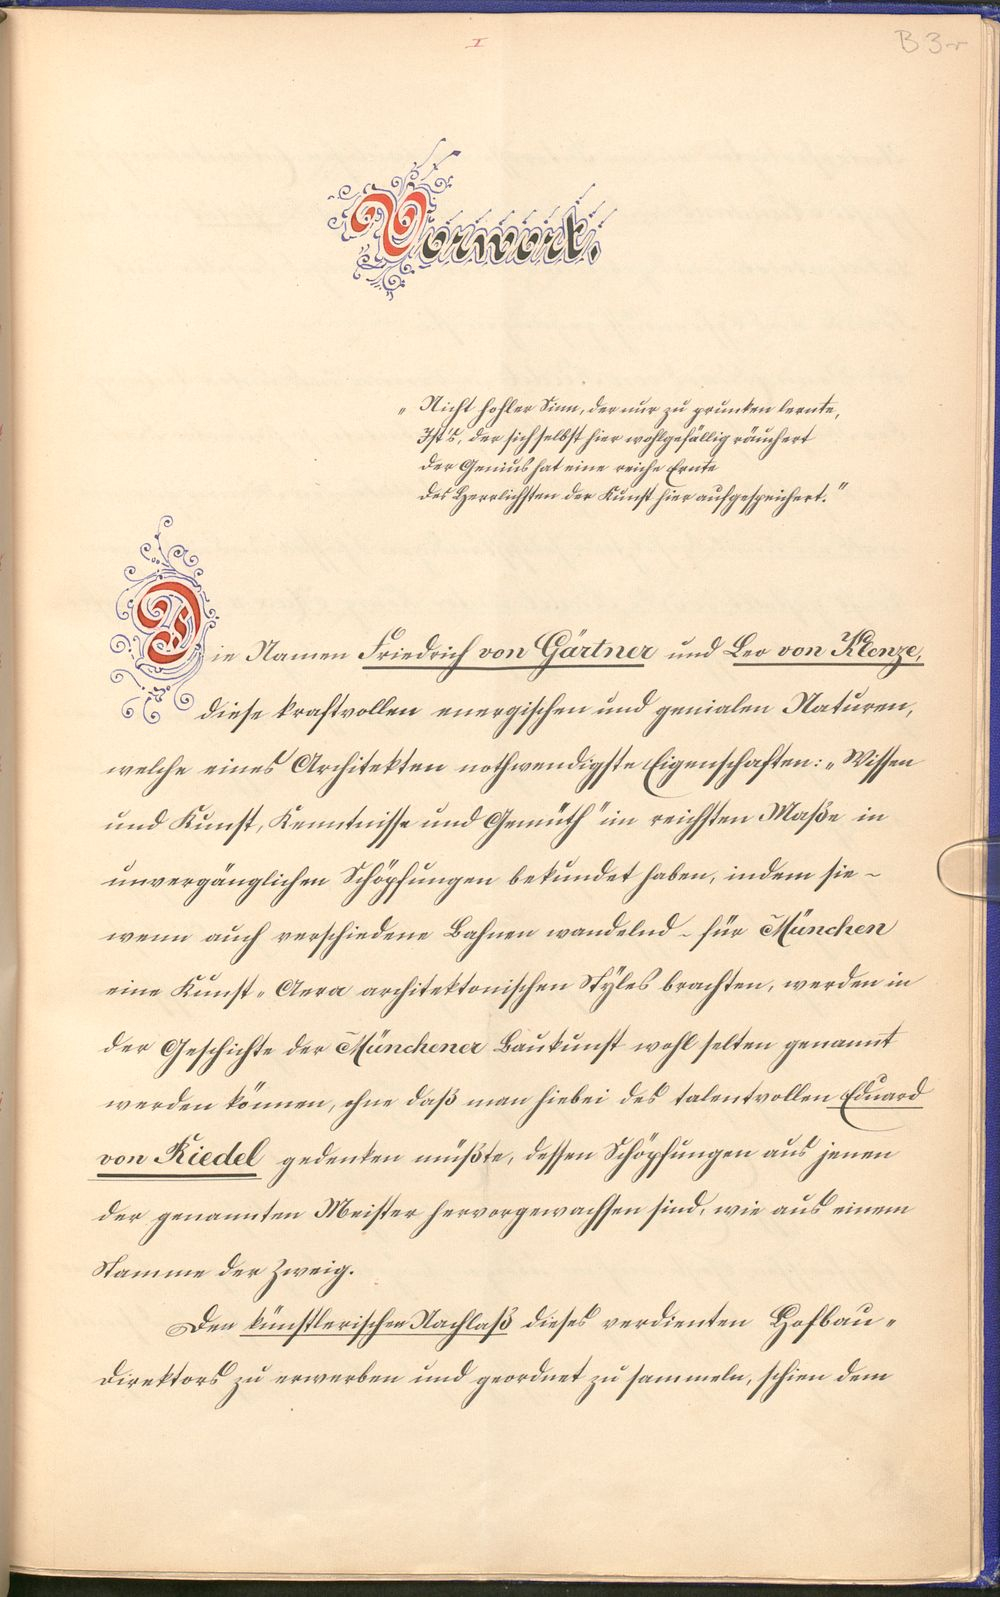 I
B 3r
Vorwort.
„Nicht hohler Sinn, der nur zu prunken lernte,
Ist's, der sich selbst hier wohlgefällig räuchert
Der Genius hat eine reiche Ernte
Des Herrlichsten der Kunst hier aufgespeichert."
Die Namen Friedrich von Gärtner und Leo von Klenze,
diese kraftvollen energischen und genialen Naturen,
welche eines Architekten nothwendigste Eigenschaften: „Wissen
und Kunst, Kenntnisse und Gemüth" im reichsten Maße in
unvergänglichen Schöpfungen bekundet haben, indem sie ~
wenn auch verschiedene Bahnen wandelnd ~ für München
eine Kunst-Aera architektonischen Styles brachten, werden in
der Geschichte der Münchener Baukunst wohl selten genannt
werden können, ohne daß man hiebei des talentvollen Eduard
von Riedel gedenken müßte, dessen Schöpfungen aus jenen
der genannten Meister hervorgewachsen sind, wie aus einem
Stamme der Zweig.
Den künstlerischen Nachlaß dieses verdienten Hofbau-
Direktors zu erwerben und geordnet zu sammeln, schien dem